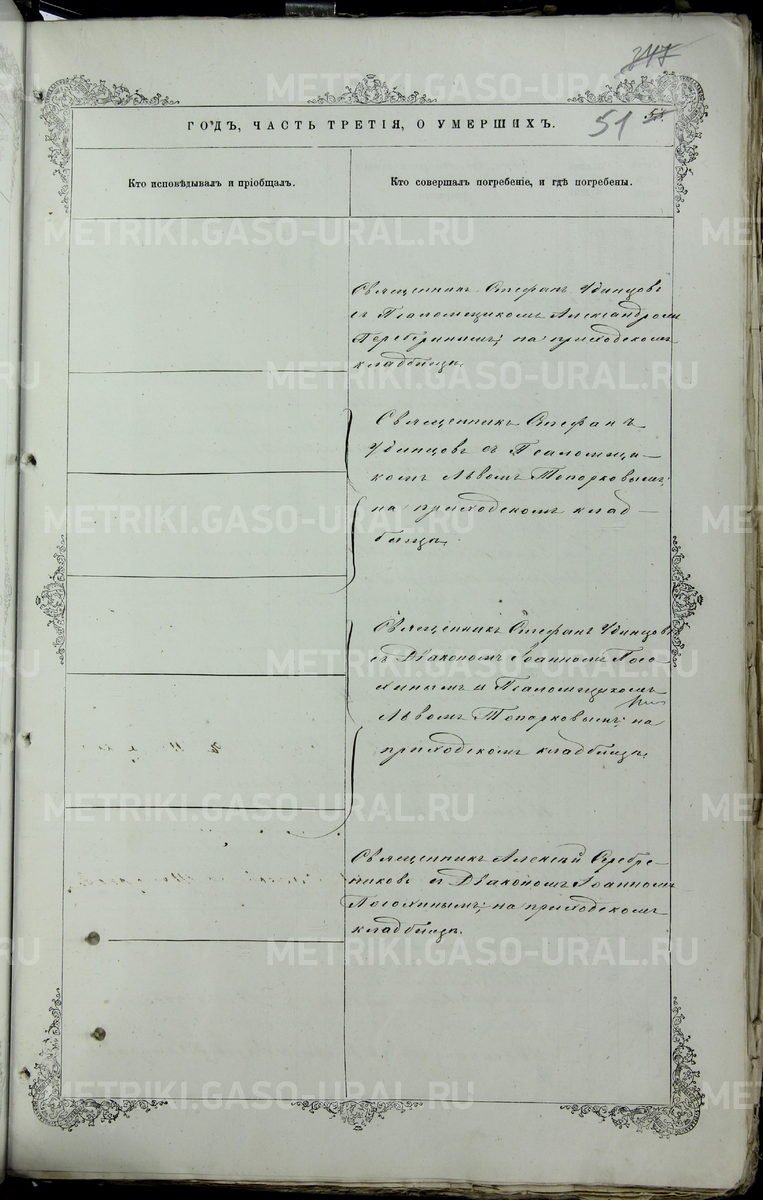 247
51
ГОДЪ, ЧАСТЬ ТРЕТІЯ, О УМЕРШИХЪ.
Кто исповѣдывалъ и пріобщалъ.
Кто совершалъ погребеніе, и гдѣ погребены.
Священникъ Стефанъ Удинцовъ
съ Псаломщикомъ Александромъ
на приходскомъ
кладбищѣ.
Священникъ Стефанъ
Удинцовъ съ Псаломщи-
комъ Львомъ Топорковымъ;
на приходскомъ клад-
бищѣ.
Священникъ Стефанъ Удинцовъ
съ Діакономъ Іоанномъ Пого-
и Псаломщикомъ
Львомъ Топорковымъ; на
приходскомъ кладбищѣ.
Священникъ Алексій Серебре-
никовъ съ Діакономъ Іоанномъ
на приходскомъ
кладбищѣ.
METRIKI.GASO-URAL.RU